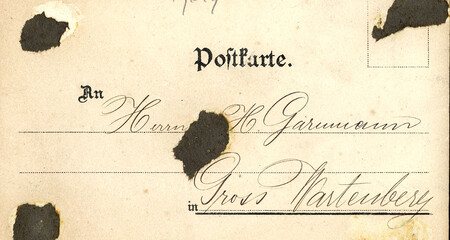 Postkarte.
An
Herrn H Garumann
in Gross Wartenberg